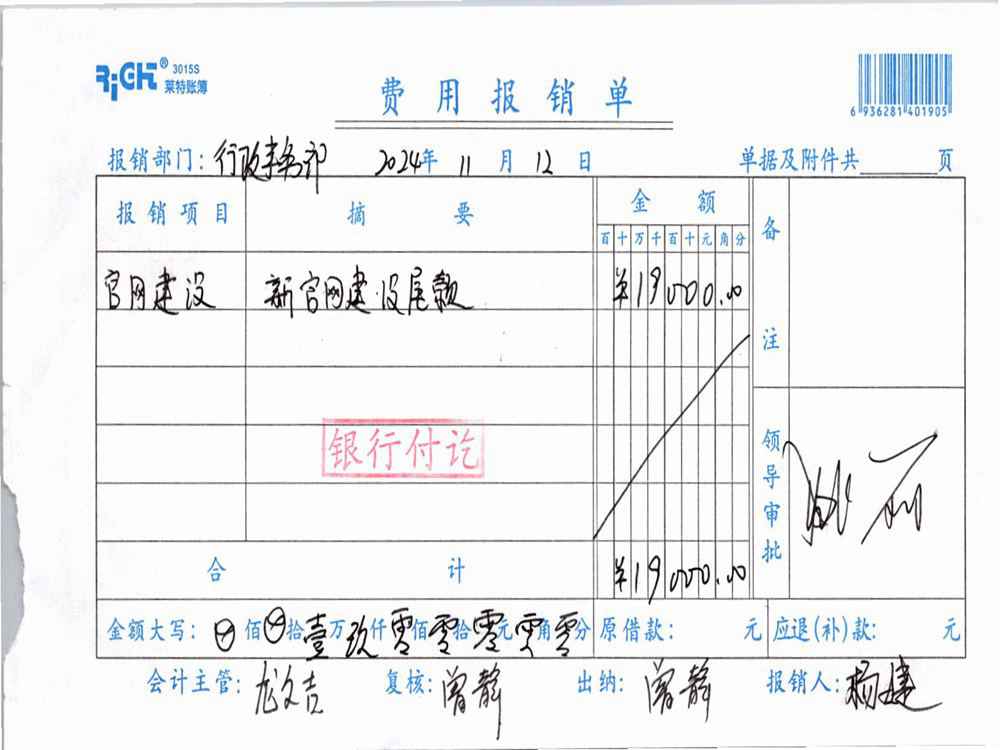 RiGHT® 3015S
莱特账簿
费用报销单
6 936281 401905
报销部门：行政事务部 2024年 11 月 12 日 单据及附件共 页
报销项目 摘要 金额 备注
百 十 万 千 百 十 元 角 分
官网建设 新官网建设尾款 ¥19000.00
银行付讫
领导审批
合计 ¥19000.00
金额大写：⊗佰⊗拾壹万玖仟零佰零拾零元零角零分 原借款： 元 应退(补)款： 元
会计主管：龙文吉 复核：曾静 出纳：曾静 报销人：杨建